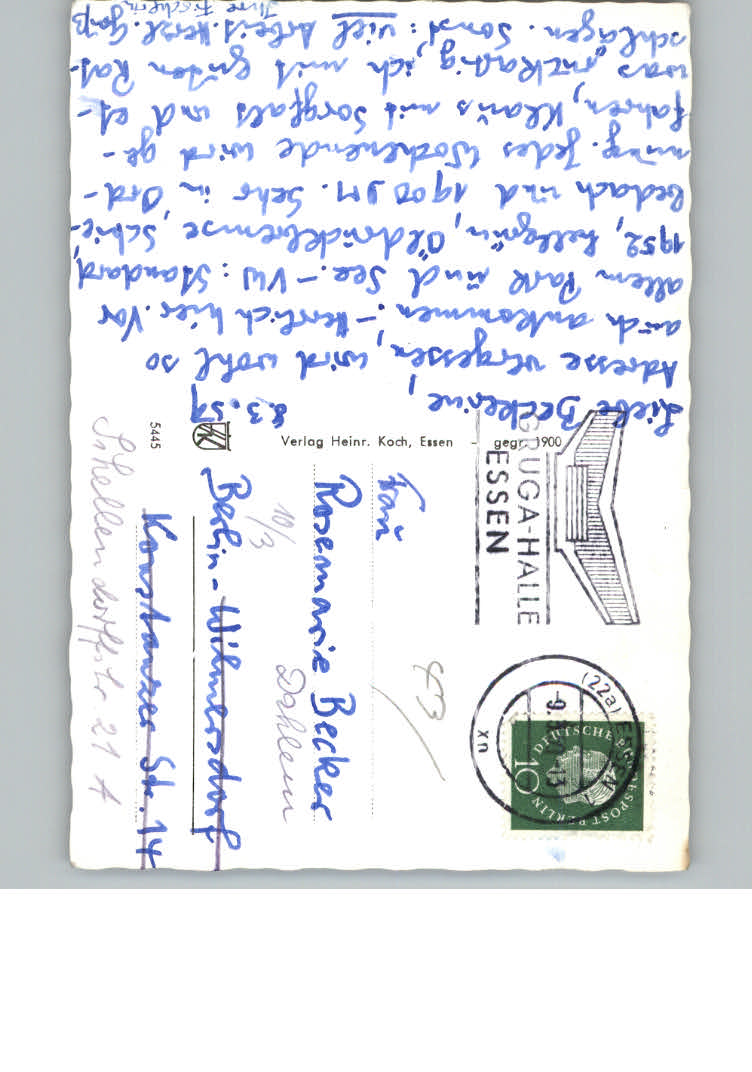 8.3.59
Liebe Beckerine,
Adresse vergessen, wird wohl so
auch ankommen. – Herrlich hier. Vor
allem Park und See. – VW: Standard,
1952, hellgrün, Öldruckbremse, Schie-
bedach und 1900 DM. Sehr in Ord-
nung. Jedes Wochenende wird ge-
fahren, Klaus mit Sorgfalt und et-
was ruckadig, ich mit guten Rat-
schlägen. Sonst: viel Arbeit. Herzl. Grüß
Ihre Fischerin
Verlag Heinr. Koch, Essen – gegr. 1900
5445
GRUGA-HALLE
ESSEN
(22a) ESSEN
-9.3.59-13
xn
DEUTSCHE BUNDESPOST BERLIN
10
43
Frau
Rosemarie Becker
10/3 Dahlem
Berlin-Wilmersdorf
Konstanzer Str. 14
Schellendorffstr 21 A